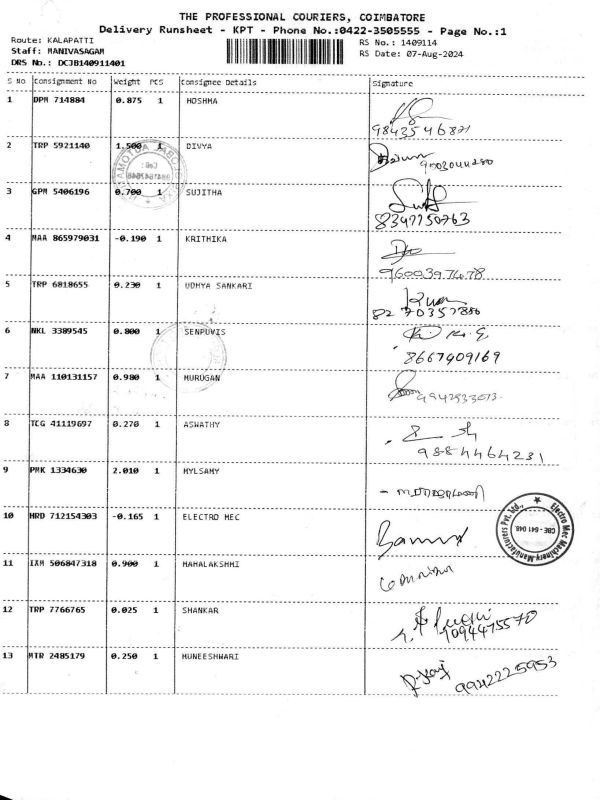 THE PROFESSIONAL COURIERS, COIMBATORE
Delivery Runsheet - KPT - Phone No.:0422-3505555 - Page No.:1
Route: KALAPATTI
RS No.: 1409114
Staff: MANIVASAGAM
RS Date: 07-Aug-2024
DRS No.: DCJB140911401
S No Consignment No Weight PCS Consignee Details Signature
1 DPM 714884 0.875 1 HOSHMA
2 TRP 5921140 1.500 1 DIVYA
3 GPM 5406196 0.700 1 SUJITHA
8347750763
4 MAA 865979031 -0.190 1 KRITHIKA
5 TRP 6818655 0.230 1 UDHYA SANKARI
6 NKL 3389545 0.800 1 SENPUVIS
8667409169
7 MAA 110131157 0.980 1 MURUGAN
8 TCG 41119697 0.270 1 ASWATHY
9884464231
9 PMK 1334630 2.010 1 MYLSAMY
10 HRD 712154303 -0.165 1 ELECTRO MEC
Electro Mec Machinery Manufacturers Pvt. Ltd.,
CBE - 641 048.
11 IXM 506847318 0.900 1 MAHALAKSHMI
12 TRP 7766765 0.025 1 SHANKAR
13 MTR 2485179 0.250 1 MUNEESHWARI
9942225953